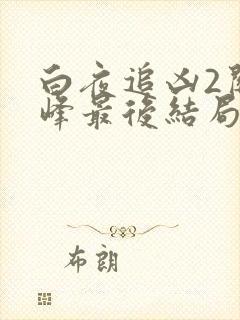 白夜追凶2關
峰最後結局
布朗